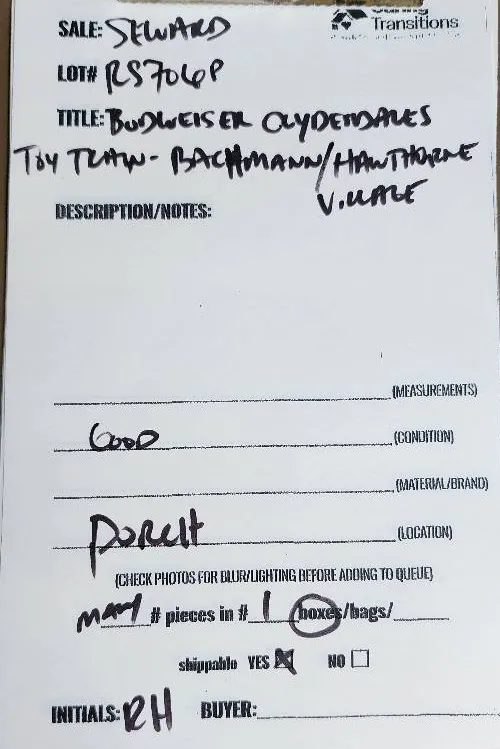 Transitions
SALE: SEWARD
LOT# RS706P
TITLE: BUDWEISER CLYDESDALES
TOY TRAIN - BACHMANN/HAWTHORNE
VILLAGE
DESCRIPTION/NOTES:
(MEASUREMENTS)
GOOD (CONDITION)
(MATERIAL/BRAND)
PORCH (LOCATION)
(CHECK PHOTOS FOR BLUR/LIGHTING BEFORE ADDING TO QUEUE)
MANY # pieces in # 1 boxes/bags/
shippable YES NO
INITIALS: RH BUYER: